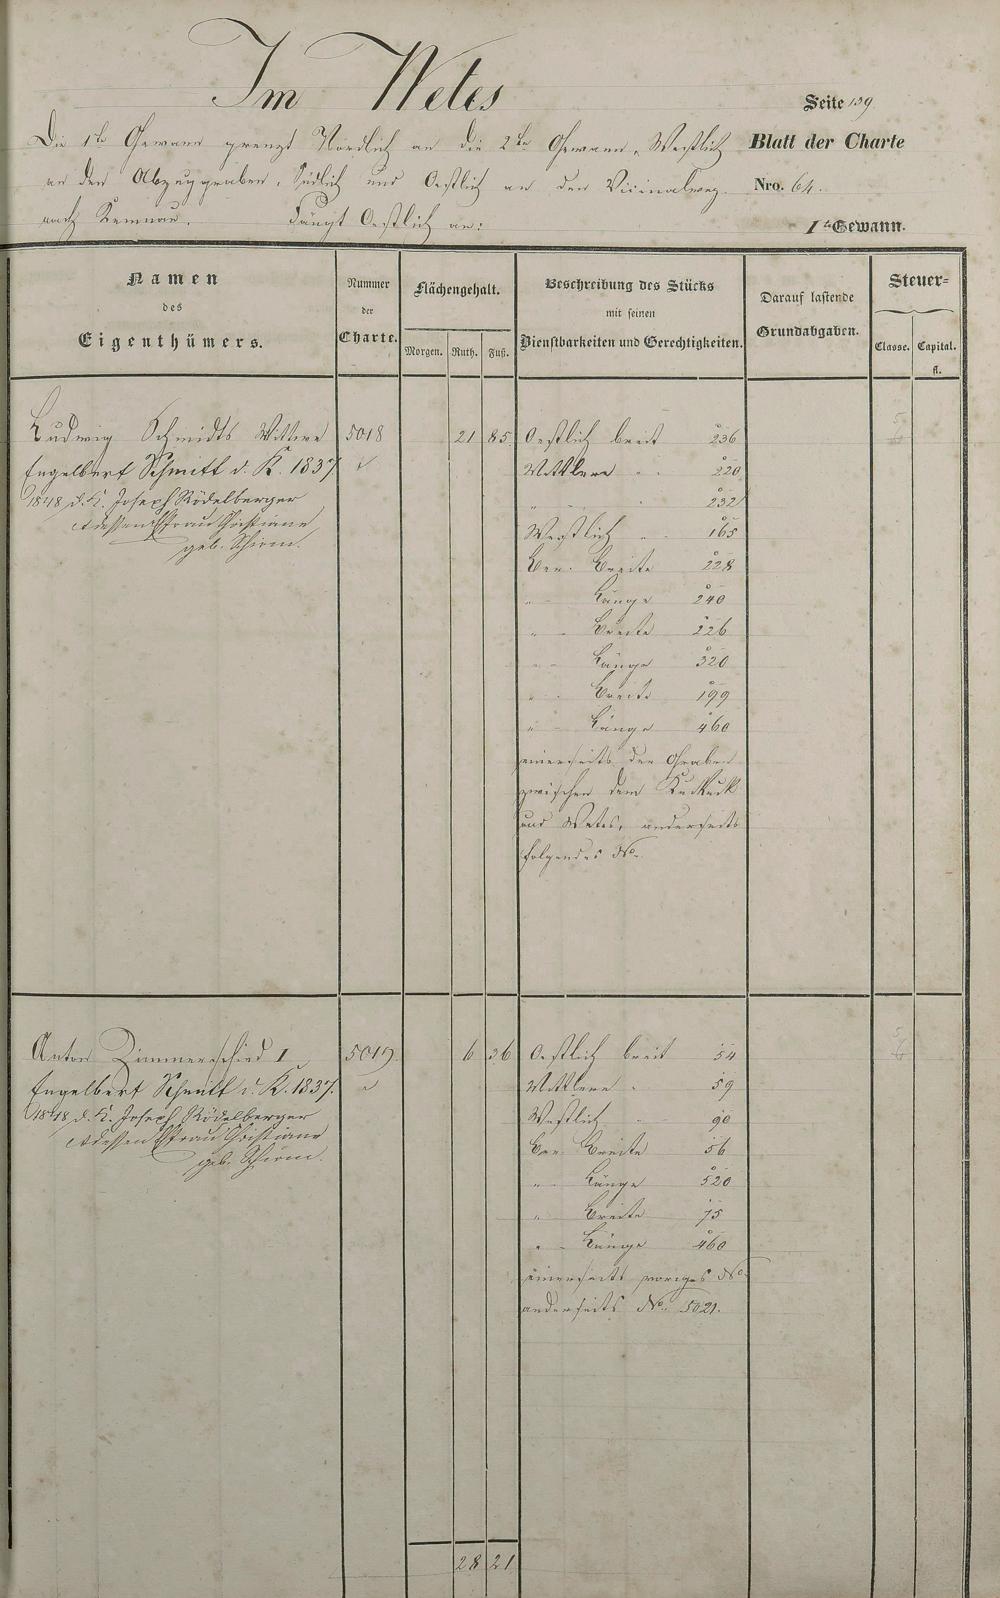 Im Wetes
Seite 139
Die 1te Gewann grenzt Nördlich an die 2te Gewann, Westlich
Blatt der Charte
an den Abzuggraben, Südlich und Oestlich an den Vicinalweg
Nro. 64.
nach Kemnau. Fängt Oestlich an:
1te Gewann.
Namen
des
Eigenthümers.
Nummer
der
Charte.
Flächengehalt.
Morgen. Ruth. Fuß.
Beschreibung des Stücks
mit seinen
Dienstbarkeiten und Gerechtigkeiten.
Darauf lastende
Grundabgaben.
Steuer=
Classe. Capital.
fl.
Ludwig Schmidts Wittwe 5018 21 85 Oestlich breit 236
Engelbert Schmitt d. K. 1837. Mittlere 220
1848 d. K. Joseph Rödelberger 232
& dessen Ehefrau Christiane Westlich 165
geb. Schirm. Ber. Breite 228
" Länge 240
" Breite 226
" Länge 320
" Breite 199
" Länge 460
einerseits der Graben
zwischen dem Kuckuck
und Wetes, anderseits
folgendes No.
Anton Zimmerschied I 5019 6 36 Oestlich breit 54
Engelbert Schmitt d. K. 1837. Mittlere 59
1848 d. K. Joseph Rödelberger Westlich 90
& dessen Ehefrau Christiane Ber. Breite 56
geb. Schirm. " Länge 520
" Breite 75
" Länge 460
einerseits voriges No.
anderseits No. 5021.
28 21